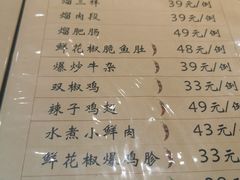 熘三样 39元/例
熘肉段 39元/例
熘肥肠 49元/例
鲜花椒脆鱼肚 48元/例
爆炒牛杂 39元/例
双椒鸡 33元/例
辣子鸡翅 49元/例
水煮小鲜肉 43元/例
鲜花椒爆鸡胗 33元